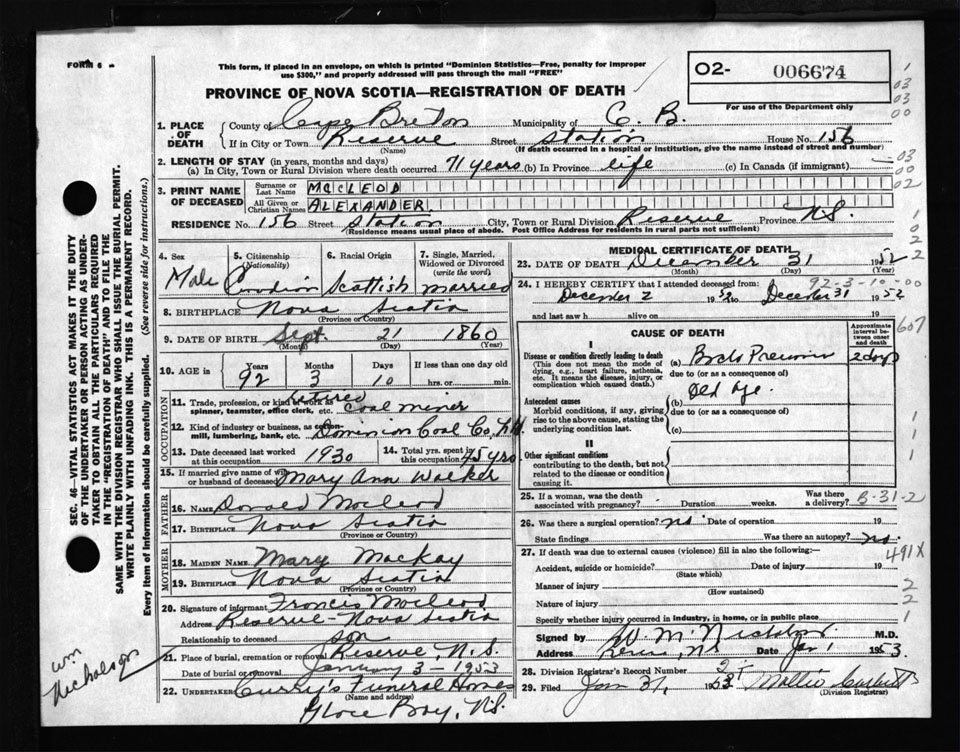 FORM 6
This form, if placed in an envelope, on which is printed "Dominion Statistics—Free, penalty for improper
use $300," and properly addressed will pass through the mail "FREE"
PROVINCE OF NOVA SCOTIA—REGISTRATION OF DEATH
02- 006674
For use of the Department only
1. PLACE OF DEATH County of Cape Breton Municipality of C. B.
If in City or Town Reserve Street Station House No. 156
(Name) (If death occurred in a hospital or institution, give the name instead of street and number)
2. LENGTH OF STAY (in years, months and days)
(a) In City, Town or Rural Division where death occurred 71 years (b) In Province life (c) In Canada (if immigrant)
3. PRINT NAME OF DECEASED Surname or Last Name MCCLEOD
All Given or Christian Names ALEXANDER
RESIDENCE No. 156 Street Station City, Town or Rural Division Reserve Province N.S.
(Residence means usual place of abode. Post Office Address for residents in rural parts not sufficient)
4. Sex Male
5. Citizenship (Nationality) Canadian
6. Racial Origin Scottish
7. Single, Married, Widowed or Divorced (write the word) married
8. BIRTHPLACE Nova Scotia
(Province or Country)
9. DATE OF BIRTH Sept. 21 1860
(Month) (Day) (Year)
10. AGE in Years 92 Months 3 Days 10 If less than one day old
hrs. or min.
OCCUPATION
11. Trade, profession, or kind of work as spinner, teamster, office clerk, etc. retired coal miner
12. Kind of industry or business, as cotton-mill, lumbering, bank, etc. Dominion Coal Co. Ltd.
13. Date deceased last worked at this occupation 1930
14. Total yrs. spent in this occupation 45 yrs
15. If married give name of wife or husband of deceased Mary Ann Walker
FATHER
16. NAME Donald McLeod
17. BIRTHPLACE Nova Scotia
(Province or Country)
MOTHER
18. MAIDEN NAME Mary MacKay
19. BIRTHPLACE Nova Scotia
(Province or Country)
20. Signature of informant Francis McLeod
Address Reserve - Nova Scotia
Relationship to deceased son
21. Place of burial, cremation or removal Reserve N.S.
Date of burial or removal January 3 - 1953
22. UNDERTAKER Curry's Funeral Home
(Name and address)
Glace Bay, N.S.
MEDICAL CERTIFICATE OF DEATH
23. DATE OF DEATH December 31 1952
(Month) (Day) (Year)
24. I HEREBY CERTIFY that I attended deceased from: 92-3-10-00
December 2 1952 to December 31 1952
and last saw h alive on 19
CAUSE OF DEATH
Approximate interval between onset and death
I
Disease or condition directly leading to death
(This does not mean the mode of dying, e.g., heart failure, asthenia, etc. It means the disease, injury, or complication which caused death.)
(a) 2 days
due to (or as a consequence of)
Antecedent causes
Morbid conditions, if any, giving rise to the above cause, stating the underlying condition last.
(b) Old Age.
due to (or as a consequence of)
(c)
II
Other significant conditions
contributing to the death, but not related to the disease or condition causing it.
25. If a woman, was the death associated with pregnancy? Duration weeks. Was there a delivery? B-31-2
26. Was there a surgical operation? no Date of operation 19
State findings Was there an autopsy? no.
27. If death was due to external causes (violence) fill in also the following:— 491X
Accident, suicide or homicide? Date of injury 19
(State which)
Manner of injury
(How sustained)
Nature of injury
Specify whether injury occurred in industry, in home, or in public place
Signed by M.D.
Address Date Jan 1 1953.
28. Division Registrar's Record Number
29. Filed Jan 31, 1953 Mollie
(Division Registrar)
SEC. 46—VITAL STATISTICS ACT MAKES IT THE DUTY
OF THE UNDERTAKER OR PERSON ACTING AS UNDERTAKER TO OBTAIN ALL THE PARTICULARS REQUIRED
IN THE "REGISTRATION OF DEATH" AND TO FILE THE
SAME WITH THE DIVISION REGISTRAR WHO SHALL ISSUE THE BURIAL PERMIT.
WRITE PLAINLY WITH UNFADING INK. THIS IS A PERMANENT RECORD.
Every item of information should be carefully supplied. (See reverse side for instructions.)
Wm Nicholson
1
03
03
00
03
00
02
1
0
2
2
607
1
1
1
2
2
1